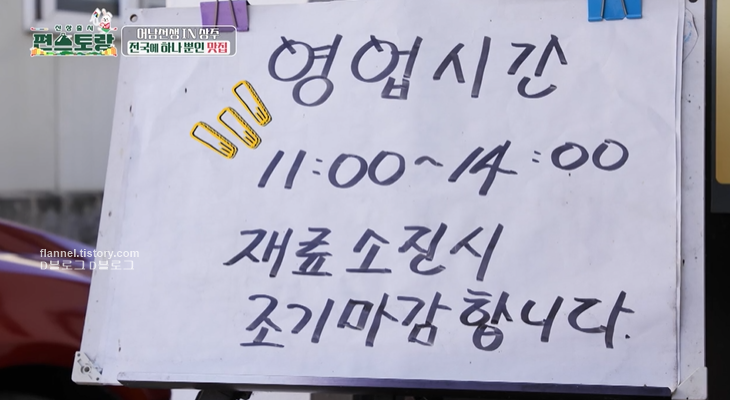 신상출시
편스토랑
어남선생 IN 상주
전국에 하나 뿐인 맛집
영업시간
11:00~14:00
재료소진시
조기마감합니다.
flannel.tistory.com
D블로그 D블로그